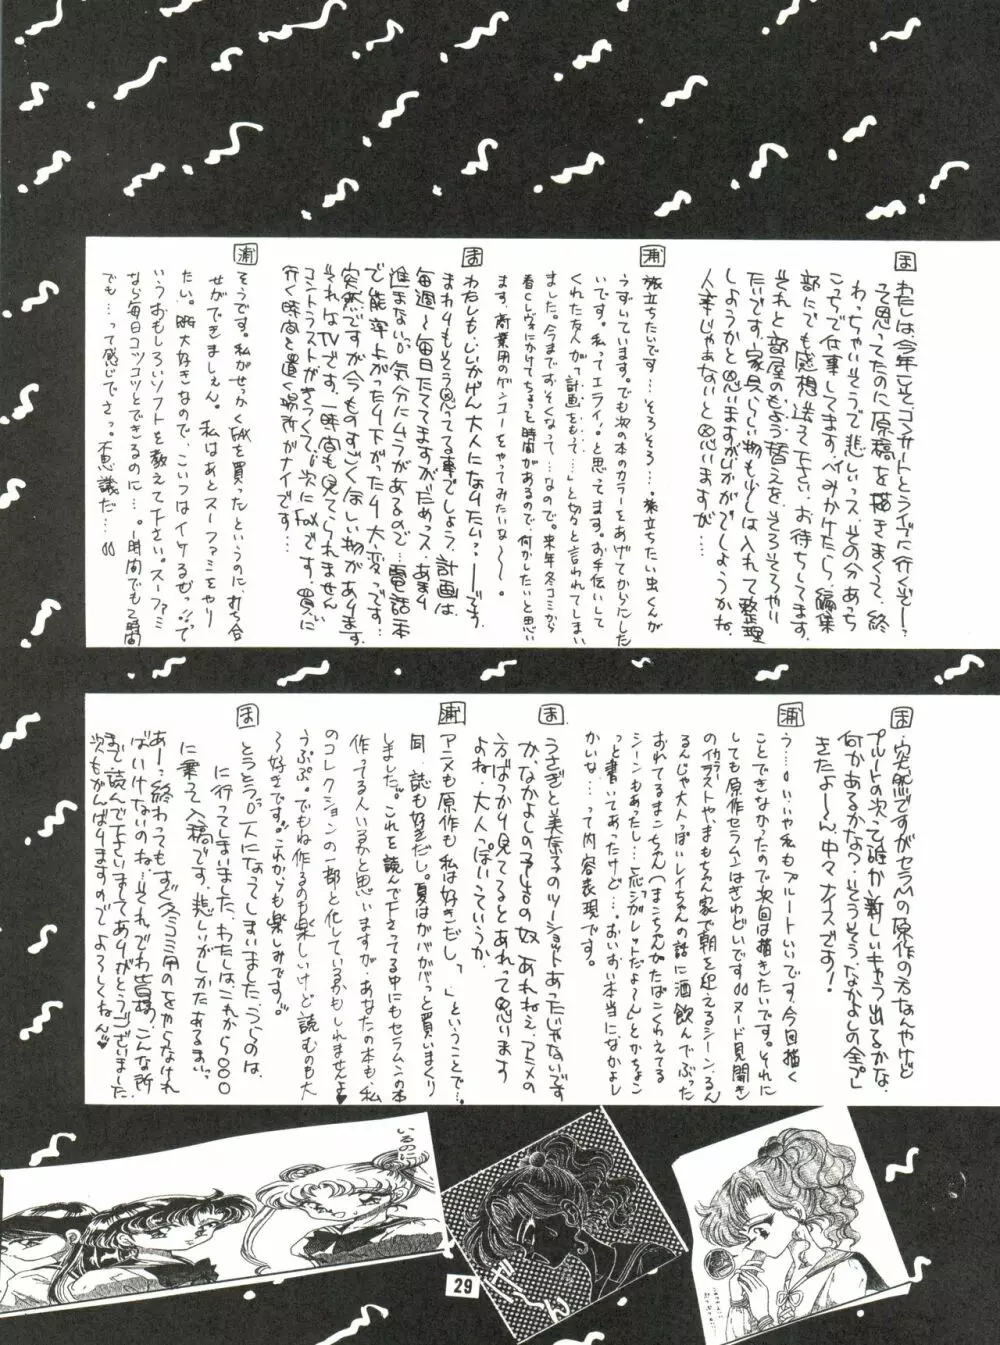 ま
わたしは今年こそコンサートとライブに行くぞー?
って思ってたのに原稿を描きまくって、終
わっちゃいそうで悲しいっス…その分あっち
こっちで仕事してます。ペイみかけたら、編集
部にでも感想送って下さい。お待ちしてます。
それと部屋のもよう替えを、そろそろやり
たいです。家具らしい物も少しは入れて整理
しようかと思いますがいかがでしょうかね。
人事じゃあないと思いますが…
浦
旅立ちたいです…そろそろ…。旅立ちたい虫くんが
うずいています。でも次の本のカラーをあげてからにした
いです。私ってエライ!?と思ってます。お手伝いして
くれた友人が「計画をもって…」と切ると言われてしまい
ました。今まですごくなくって…なので。来年冬コミから
春Cレヴォにかけてちょっと時間があるので、何かしたいと思い
ます。商業用のゲンコーをやってみたいな〜〜。
ま
わたしもいいかげん大人になりたい?——です。
まわりもそう思ってる事でしょう。計画は
毎週〜毎日たててますがだめっス。あまり
進まない。気分にムラがあるので…電話一本
で能率上がったり下がったり大変っです…
突然ですが今ものすごくほしい物があります。
それはTVです。一時間も見てられません
コントラストがきつくて。次にFAXです。買いに
行く時間と置く場所がナイです…
浦
そうです。私がせっかくFAXを買ったというのに、打ち合
せができましぇん。私はあとスーファミをやり
たい。豚大好きなので、こいつはイケるぜっ!!って
いうおもしろいソフトを教えて下さい。スーファミ
なら毎日コツコツとできるのに…。一時間でも2時間
でも…って感じでさっ。不思議だ…。
ま
突然ですがセラムの原作の方なんやけど
プルートの次って誰か新しいキャラ出るかな、
何かあるかな?…そうそう、なかよしの全プレ
きたよ〜ん、中々ナイスです!
浦
う…いいや私もプルートいいです。今回描く
ことできなかったので次回は描きたいです。それに
しても原作セラムーンはきわどいです。ヌード見開き
のイラストや、まもちゃん家で朝を迎えるシーン、るん
るんじゃ大人っぽいレイちゃんの話に酒飲んでぶった
おれてるまこちゃん(まこちゃんがたばこくわえてる
シーンもあったし…一応シガレットだよ〜ん)とかちょこ
っと書いてあったけど…。おいおい本当になかよし
かいな…って内容表現です。
ま
うさぎと美奈子のツーショットあったじゃないです
か、なかよしの予告の奴 あれねえ、アニメの
方ばっかり見てるとあれって思います
よね。大人っぽいっていうか。
浦
アニメも原作も私は好きだし、」ということで…。
同人誌も好きだし。夏はガバガバっと買いまくり
しました。これを読んで下さってる中にもセラムンの本
作ってる人いるかと思いますが、あなたの本も、私
のコレクションの一部と化しているかもしれませんよ♥
うぷぷ。でもね作るのも楽しいけど読むのも大
〜好きです。これからも楽しみです。
ま
とうとう一人になってしまいました、うらのは、
に行ってしまいました、わたしはこれから〇〇〇
に乗って入稿です。悲しいがしかたあるまい。
あー?終わってもすぐ冬コミ用のをやらなけれ
ばいけないのね…それでわ皆様、こんな所
まで読んで下さいましてありがとうございました
次もがんばりますのでよろしくねん♥
いるのに!!
29